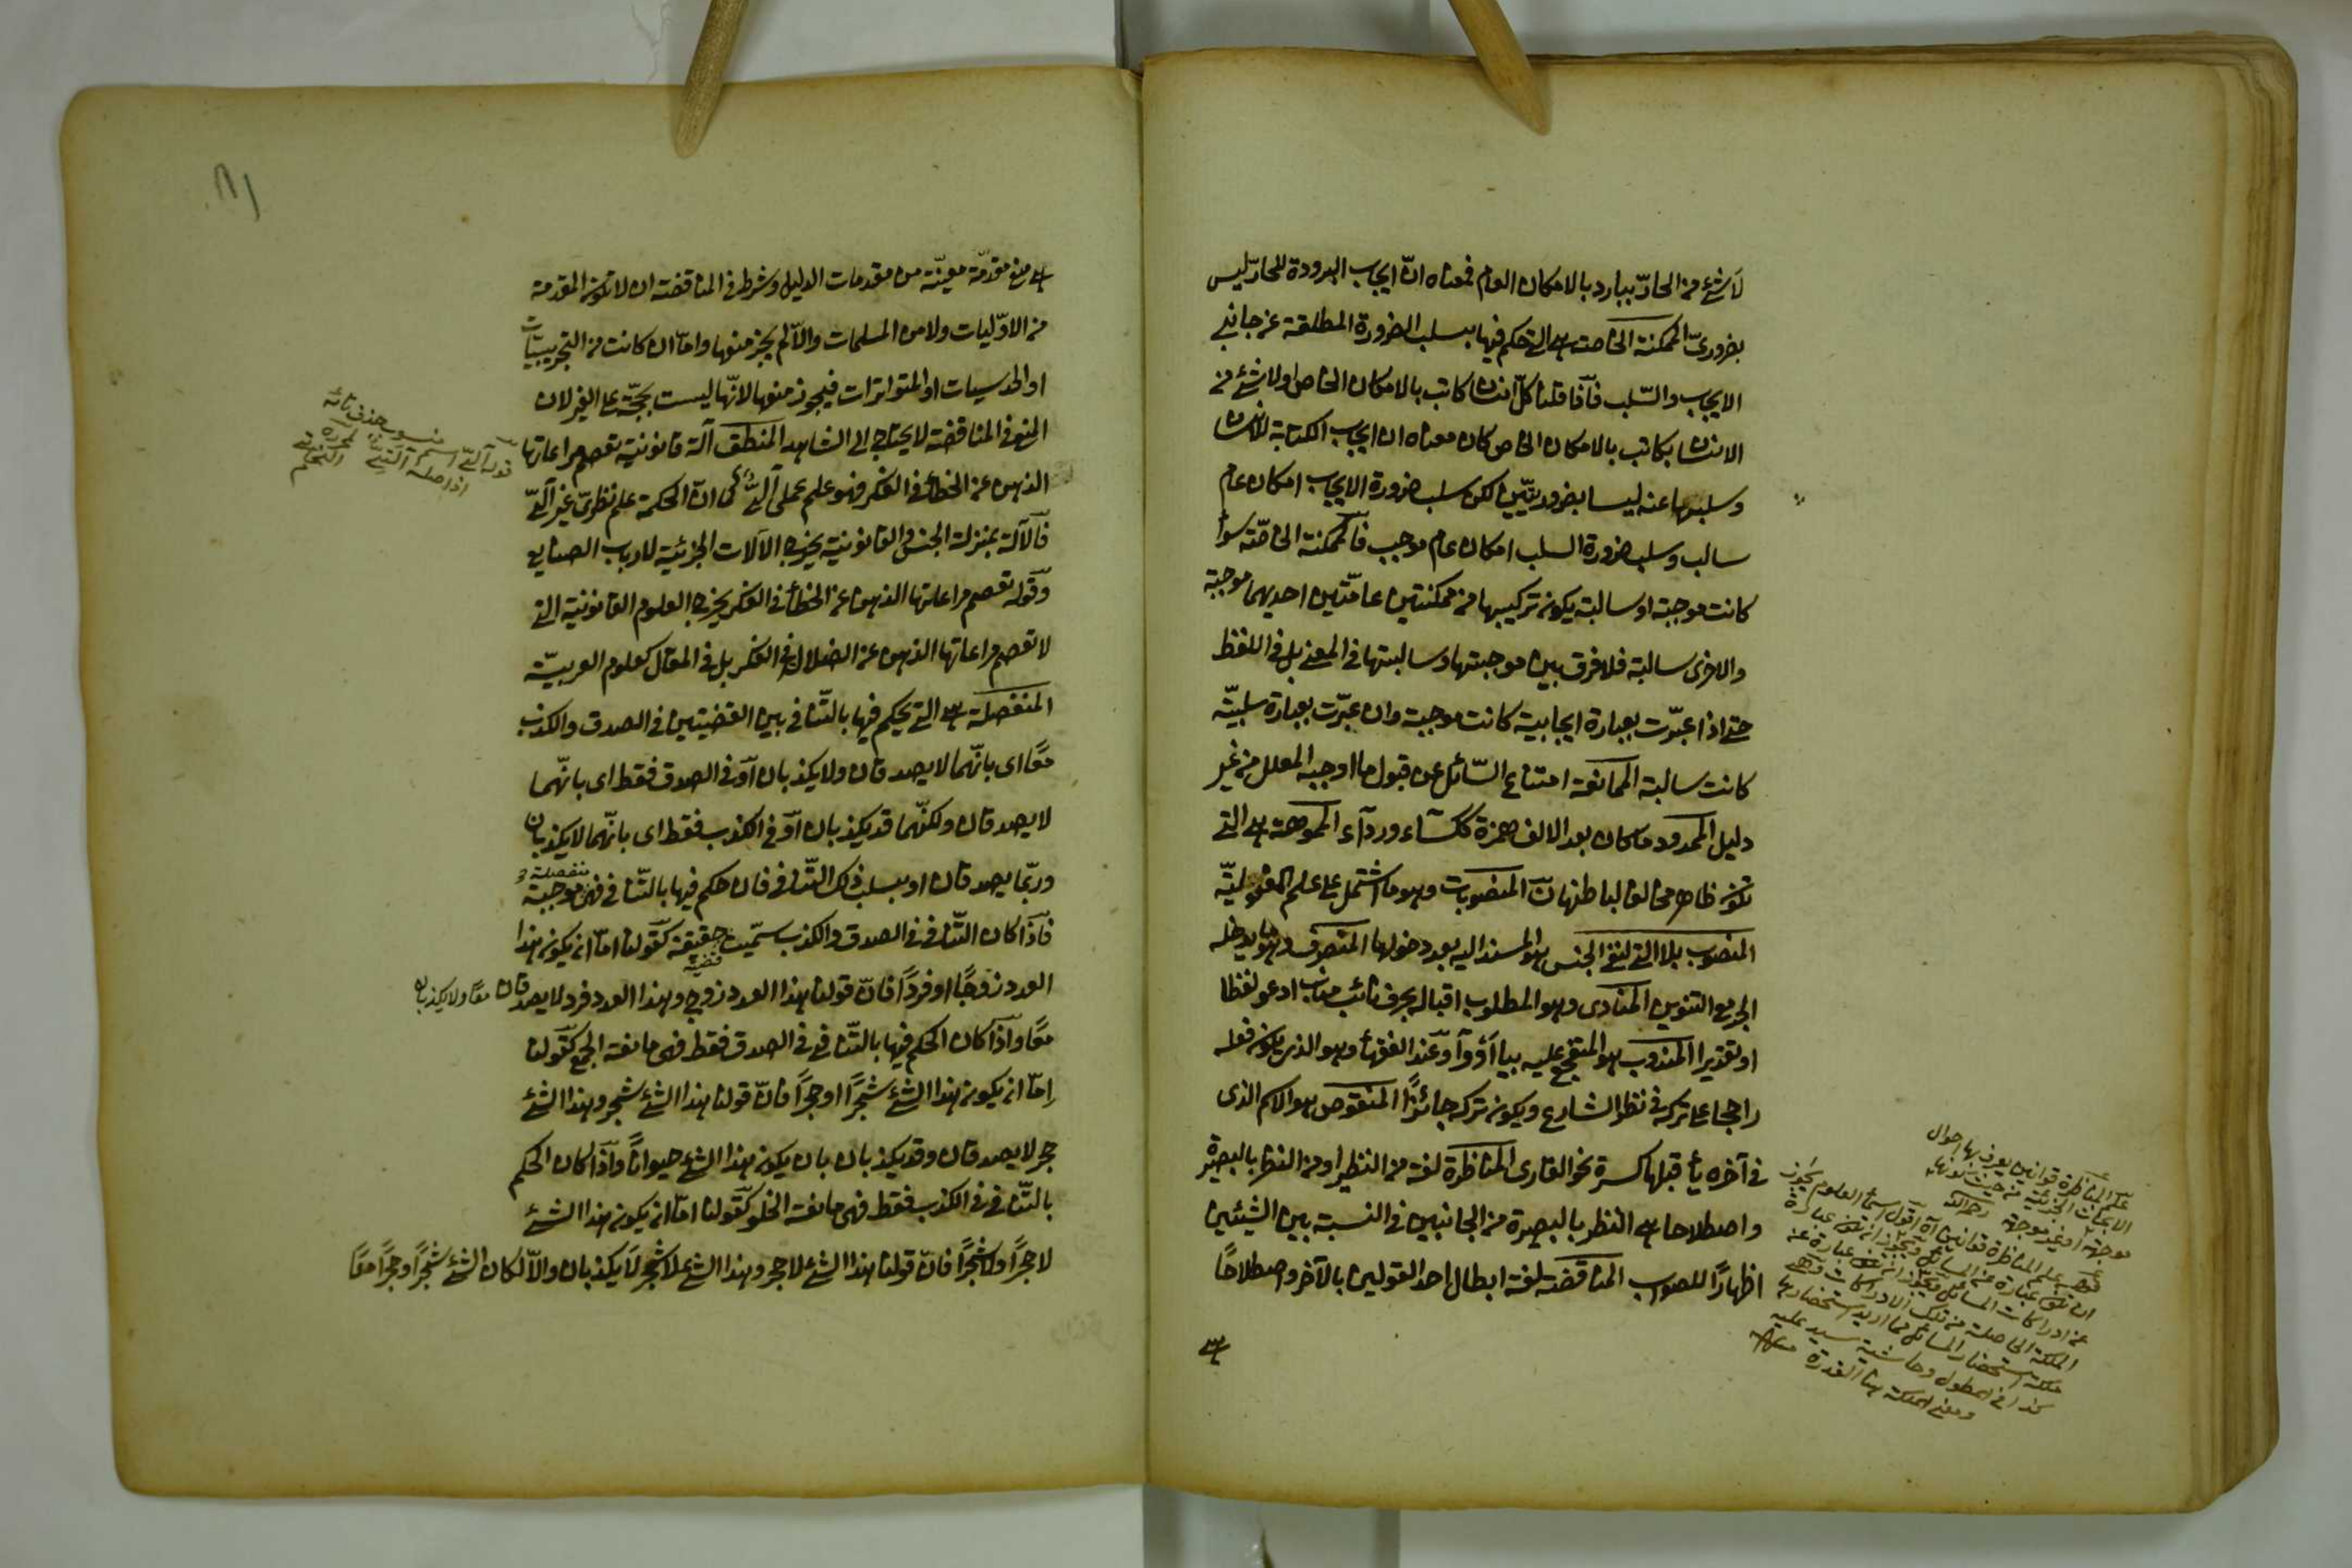 لا شئ من الحارّ ببارد بالامكان العام فمعناه انّ ايجاب البرودة للحارّ ليس
بضروريّ الممكنة الخاصة هى التى حكم فيها بسلب الضرورة المطلقة عن جانبى
الايجاب والسّلب فاذا قلنا كلّ انسان كاتب بالامكان الخاص او لا شئ من
الانسان بكاتب بالامكان الخاص كان معناه ان ايجاب الكتابة للانسان
وسلبها عنه ليسا بضروريّين لكن سلب ضرورة الايجاب امكان عام
سالب وسلب ضرورة السلب امكان عام موجب فالممكنة الخاصّة سواء
كانت موجبة او سالبة يكون تركيبها من ممكنتين عامّتين احديهما موجبة
والاخرى سالبة فلا فرق بين موجبتها وسالبتها فى المعنى بل فى اللفظ
حتى اذا عبّرت بعبارة ايجابية كانت موجبة وان عبّرت بعبارة سلبيّة
كانت سالبة الممانعة امتناع السّائل عن قبول ما اوجبه المعلل من غير
دليل الممدود ما كان بعد الالف همزة ككساء ورداء المموهة هى التى
تكون ظاهرها مخالفا لباطنها المنصوبات وهو ما اشتمل على علم المفعوليّة
المنصوب بلا التى لنفى الجنس هو المسند اليه بعد دخولها المنصرف وهو ما يدخله
الجر مع التنوين المنادى وهو المطلوب اقباله بحرف نائب مناب ادعو لفظا
او تقديرا المندوب هو المتفجع عليه بيا او وا وعند الفقهاء وهو الذى يكون فعله
راجحا على تركه فى نظر الشارع ويكون تركه جائزًا المنقوص هو الاسم الذى
فى آخره ياء قبلها كسرة نحو القارى المناظرة لغة من النظير او من النظر بالبصيرة
واصطلاحا هى النظر بالبصيرة من الجانبين فى النسبة بين الشيئين
اظهارًا للصواب المناقضة لغة ابطال احد القولين بالآخر واصطلاحًا
هى
علم المناظرة قوانين يعرف بها احوال
الابحاث الجزئية من حيث كونها
موجهة او غير موجهة
هى منع مقدّمة معيّنة من مقدمات الدليل وشرط فى المناقضة ان لا تكون المقدمة
من الاوّليات ولا من المسلمات والّا لم يجز منعها وامّا ان كانت من التجريبيات
او الحدسيات او المتواترات فيجوز منعها لانّها ليست بحجّة على الغير لان
المنع فى المناقضة لا يحتاج الى الشاهد المنطق آلة قانونيّة تعصم مراعاتها
الذهن عن الخطأ فى الفكر فهو علم عملى آلىّ كما انّ الحكمة علم نظرىّ غير آلىّ
فالآلة بمنزلة الجنس والقانونية يخرج الآلات الجزئية لارباب الصنايع
وقوله تعصم مراعاتها الذهن عن الخطأ فى الفكر يخرج العلوم القانونية التى
لا تعصم مراعاتها الذهن عن الضلال فى الفكر بل فى المقال كعلوم العربيّة
المنفصلة هى التى يحكم فيها بالتنافى بين القضيتين فى الصدق والكذب
معًا اى بانّهما لا يصدقان ولا يكذبان او فى الصدق فقط اى بانّهما
لا يصدقان ولكنّهما قد يكذبان او فى الكذب فقط اى بانّهما لا يكذبان
وربّما يصدقان او بسلب ذلك التنافى فان حكم فيها بالتنافى فهى منفصلة موجبة
فاذا كان التنافى فى الصدق والكذب سمّيت حقيقة كقولنا امّا ان يكون هذا
العدد زوجًا او فردًا فانّ قولنا هذا العدد زوج وهذا العدد فرد لا يصدقان معًا ولا يكذبان
معًا واذا كان الحكم فيها بالتنافى فى الصدق فقط فهى مانعة الجمع كقولنا
امّا ان يكون هذا الشئ شجرًا او حجرًا فانّ قولنا هذا الشئ شجر وهذا الشئ
حجر لا يصدقان وقد يكذبان بان يكون هذا الشئ حيوانًا واذا كان الحكم
بالتنافى فى الكذب فقط فهى مانعة الخلو كقولنا امّا ان يكون هذا الشئ
لا حجرًا ولا شجرًا فانّ قولنا هذا الشئ لا حجر وهذا الشئ لا شجر لا يكذبان والّا لكان الشئ شجرًا وحجرًا معًا